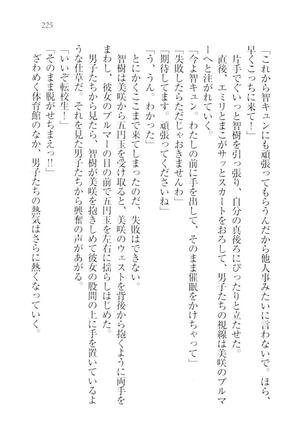 225
「これから智キュンにも頑張ってもらうんだから他人事みたいに言わないで。ほら、
早くこっちに来て！」
片手でぐいっと智樹を引っ張り、自分の真後ろにぴったりと立たせた。
直後、エミリとまこがサッとスカートをおろして、男子たちの視線は美咲のブルマ
ーへと注がれていく。
「今よ智キュン。わたしの前に手を出して、そのまま催眠をかけちゃって」
「失敗したらただじゃおきませんわ」
「期待してます。頑張ってくださいね」
「う、うん。わかった」
とにかくここまで来てしまったのだ、失敗はできない。
智樹は美咲から五円玉を受け取ると、美咲のウェストを背後から抱くように両手を
まわし、彼女のブルマーの目の前で五円玉を左右に揺らしはじめた。
男子たちから見たら、智樹が美咲を抱きしめて彼女の股間の上に手を置いているよ
うな仕草だ。それを見た男子たちから興奮の声があがる。
「いいぞ転校生！」
「そのまま脱がせちまえっ!!」
ざわめく体育館のなか、男子たちの熱気はさらに熱くなっていく。